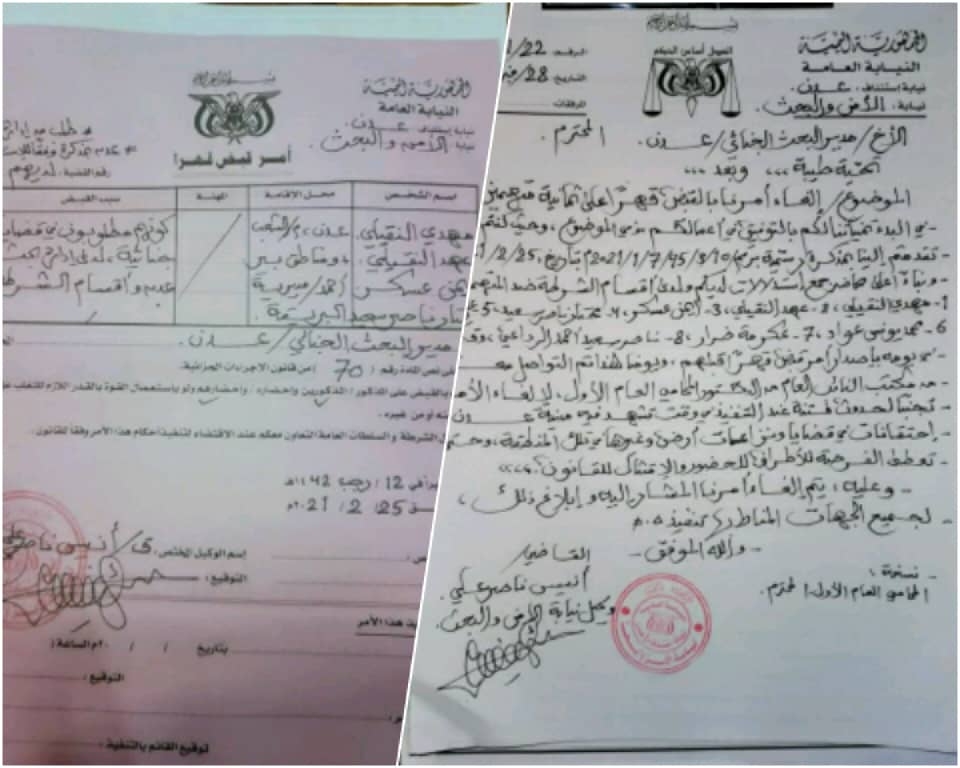 بسم الله الرحمن الرحيم
الجمهورية اليمنية
النيابة العامة
نيابة استئناف عدن
نيابة الأمن والبحث
أمر قبض قهرا
رقم القضية: لديهم
اسم الشخص
محل الاقامة
المهنة
سبب القبض
مهدي النقيلي
عهد النقيلي
أيمن عسكر
عدن، م/الشعب
ومناطق بير
أحمد/مديرية
البريقة
كونهم مطلوبون في قضايا
جنائية، لدى إدارة بحث
عدن وأقسام الشرطة
مدير البحث الجنائي/عدن.
نص المادة رقم (70) من قانون الاجراءات الجزائية.
القبض على المذكور/المذكورين واحضاره/واحضارهم ولو باستعمال القوة بالقدر اللازم للتغلب
أو من غيره.
الشرطة والسلطات العامة التعاون معكم عند الاقتضاء لتنفيذ أحكام هذا الأمر وفقا للقانون:
12/رجب/1442هـ
25/2/2021م
اسم الوكيل المختص: ق/أنيس ناصر علي
التوقيع:
هذا الأمر
بتاريخ / / ٢٠م الساعة(
التوقيع:
توقيع القائم بالتنفيذ:
بسم الله الرحمن الرحيم
الجمهورية اليمنية
العدل أساس الحكم
النيابة العامة
نيابة استئناف عدن
نيابة: الأمن والبحث
الرقم: 22/
التاريخ: 28/
المرفقات:
الأخ/مدير البحث الجنائي/عدن. المحترم.
تحية طيبة ،،، وبعد ،،،
الموضوع/إلغاء أمرنا بالقبض قهراً على ثمانية متهمين
- في البدء تمنياتنا لكم بالتوفيق في أعمالكم، وفي الموضوع، وحيث
- تقدمتم إلينا بمذكرة رسمية برقم/10/3/45/7/1/2021م بتاريخ، 25/2/
- وبناءً على محاضر جمع استدلالات لديكم ولدى أقسام الشرطة ضد المتهمين
1- مهدي النقيلي، 2- عهد النقيلي، 3- أيمن عسكر، 4- مختار ناصر سعيد، 5-
6- محمد يونس عواد، 7- عكرمة ضرار، 8- ناصر سعيد أحمد الرداعي، وقد
- في يومه بإصدار أمر قبض قهراً قبلهم، ويومنا هذا تم التواصل معنا
- من مكتب النائب العام من الدكتور المحامي العام الأول، لإلغاء الأمر
- تجنباً لحدوث فتنة عند التنفيذ في وقت تشهد فيه مدينة عدن
- إحتقانات في قضايا ونزاعات أرض وغيرها في تلك المنطقة، وحتى
- تعطى الفرصة للأطراف للحضور والإمتثال للقانون،،،
- وعليه، يتم إلغاء أمرنا المشار إليه وإبلاغ ذلك،
- لجميع الجهات المناط بها تنفيذه.
- والله الموفق -
القاضي/
أنيس ناصر علي
وكيل نيابة الأمن والبحث.
- نسخة:
المحامي العام الأول المحترم.